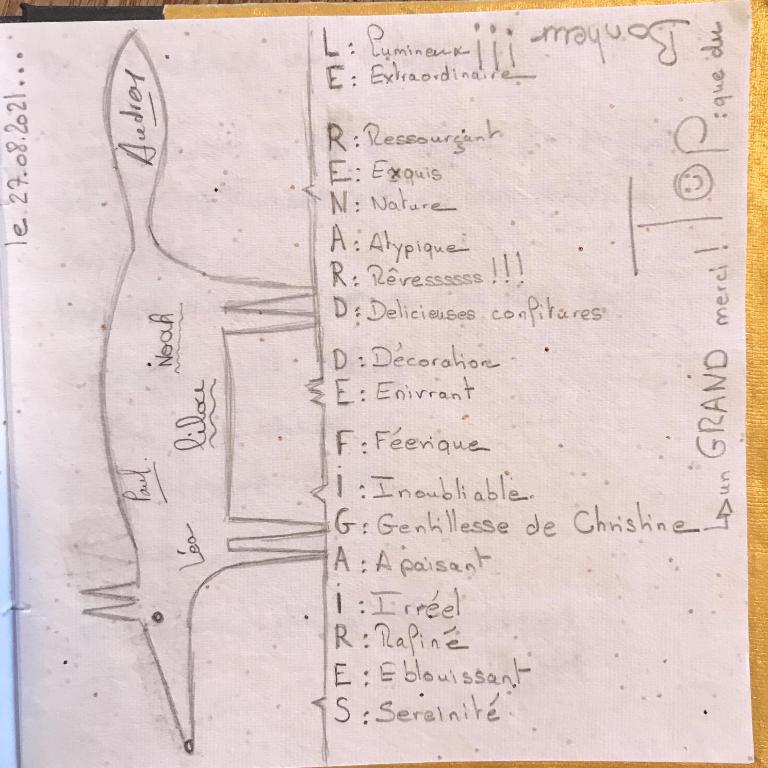 le 27.08.2021...
L : Lumineux
E : Extraordinaire
R : Ressourçant
E : Exquis
N : Nature
A : Atypique
R : Rêvessssss !!!
D : Délicieuses confitures
D : Décoration
E : Enivrant
F : Féerique
I : Inoubliable.
G : Gentillesse de Christine
A : Apaisant
I : Irréel
R : Rafiné
E : Eblouissant
S : Sereinité
→ un GRAND merci ! TOP : que du
Bonheur !!!
Audrey
Noah
Liloue
Paul.
Léa